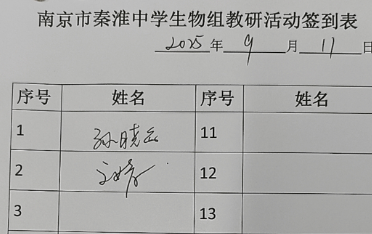 南京市秦淮中学生物组教研活动签到表
2025年9月11日
序号 姓名 序号 姓名
1 孙晓 11
2 12
3 13